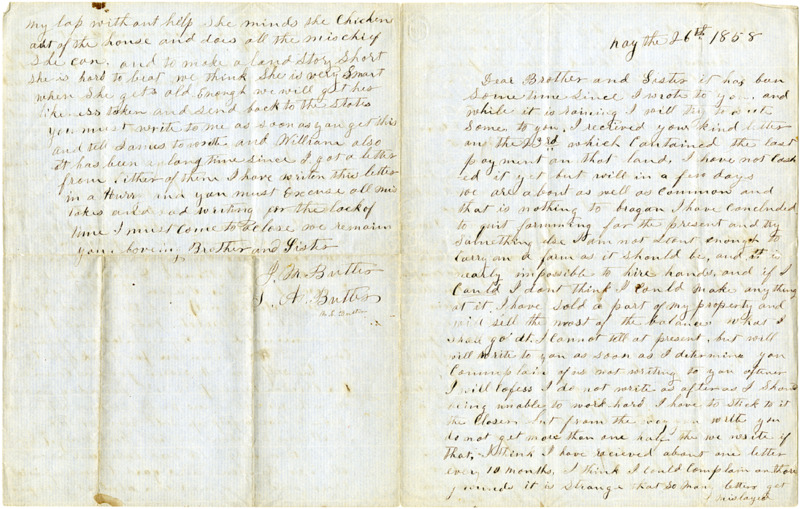 my lap without help She minds the Chicken
out of the house and does all the mischief
She can. and to make a land Story Short
She is hard to beat we think She is very Smart
when She gets old Enough we will get her
likeness taken and send back to the States
you must write to me as soon as you get this
and tell James to write and William also
it has been a long time since I got a letter
from Either of them I have writen this letter
in a Hurry and you must Excuse all mis
takes and bad writing for the lack of
time I must come to a close we remain
your loveing Brother and Sister
J. M Butler
A. Butler
May the 26th 1858
Dear Brother and Sister it has been
Some time Since I wrote to you. and
while it is raining I will try to write
Some to you, I recieved your kind letter
on the 23rd which Contained the last
payment on that land, I have not Cash
ed it yet but will in a few days
we are about as well as Common and
that is nothing to bragon I have concluded
to quit farmming for the present and try
Something else I am not Stout enough to
Carry on a farm as it should be, and it is
nearly impossible to hire hands, and if I
Could I dont think I Could make anything
at it. I have Sold a part of my property and
will sell the most of the balance what I
Shall go at. I Cannot tell at present, but will
will write to you as soon as I determine you
Commplain of us not writing to you oftener
I will Cofess I do not write as often as I Shoud
being unable to work hard I have to Stick to it
the Closer. but from the way you write you
do not get more than one half the we write if
that. I think I have recieved about one letter
every 10 months, I think I could Complain
it is Strange that So many letters get
mislayed